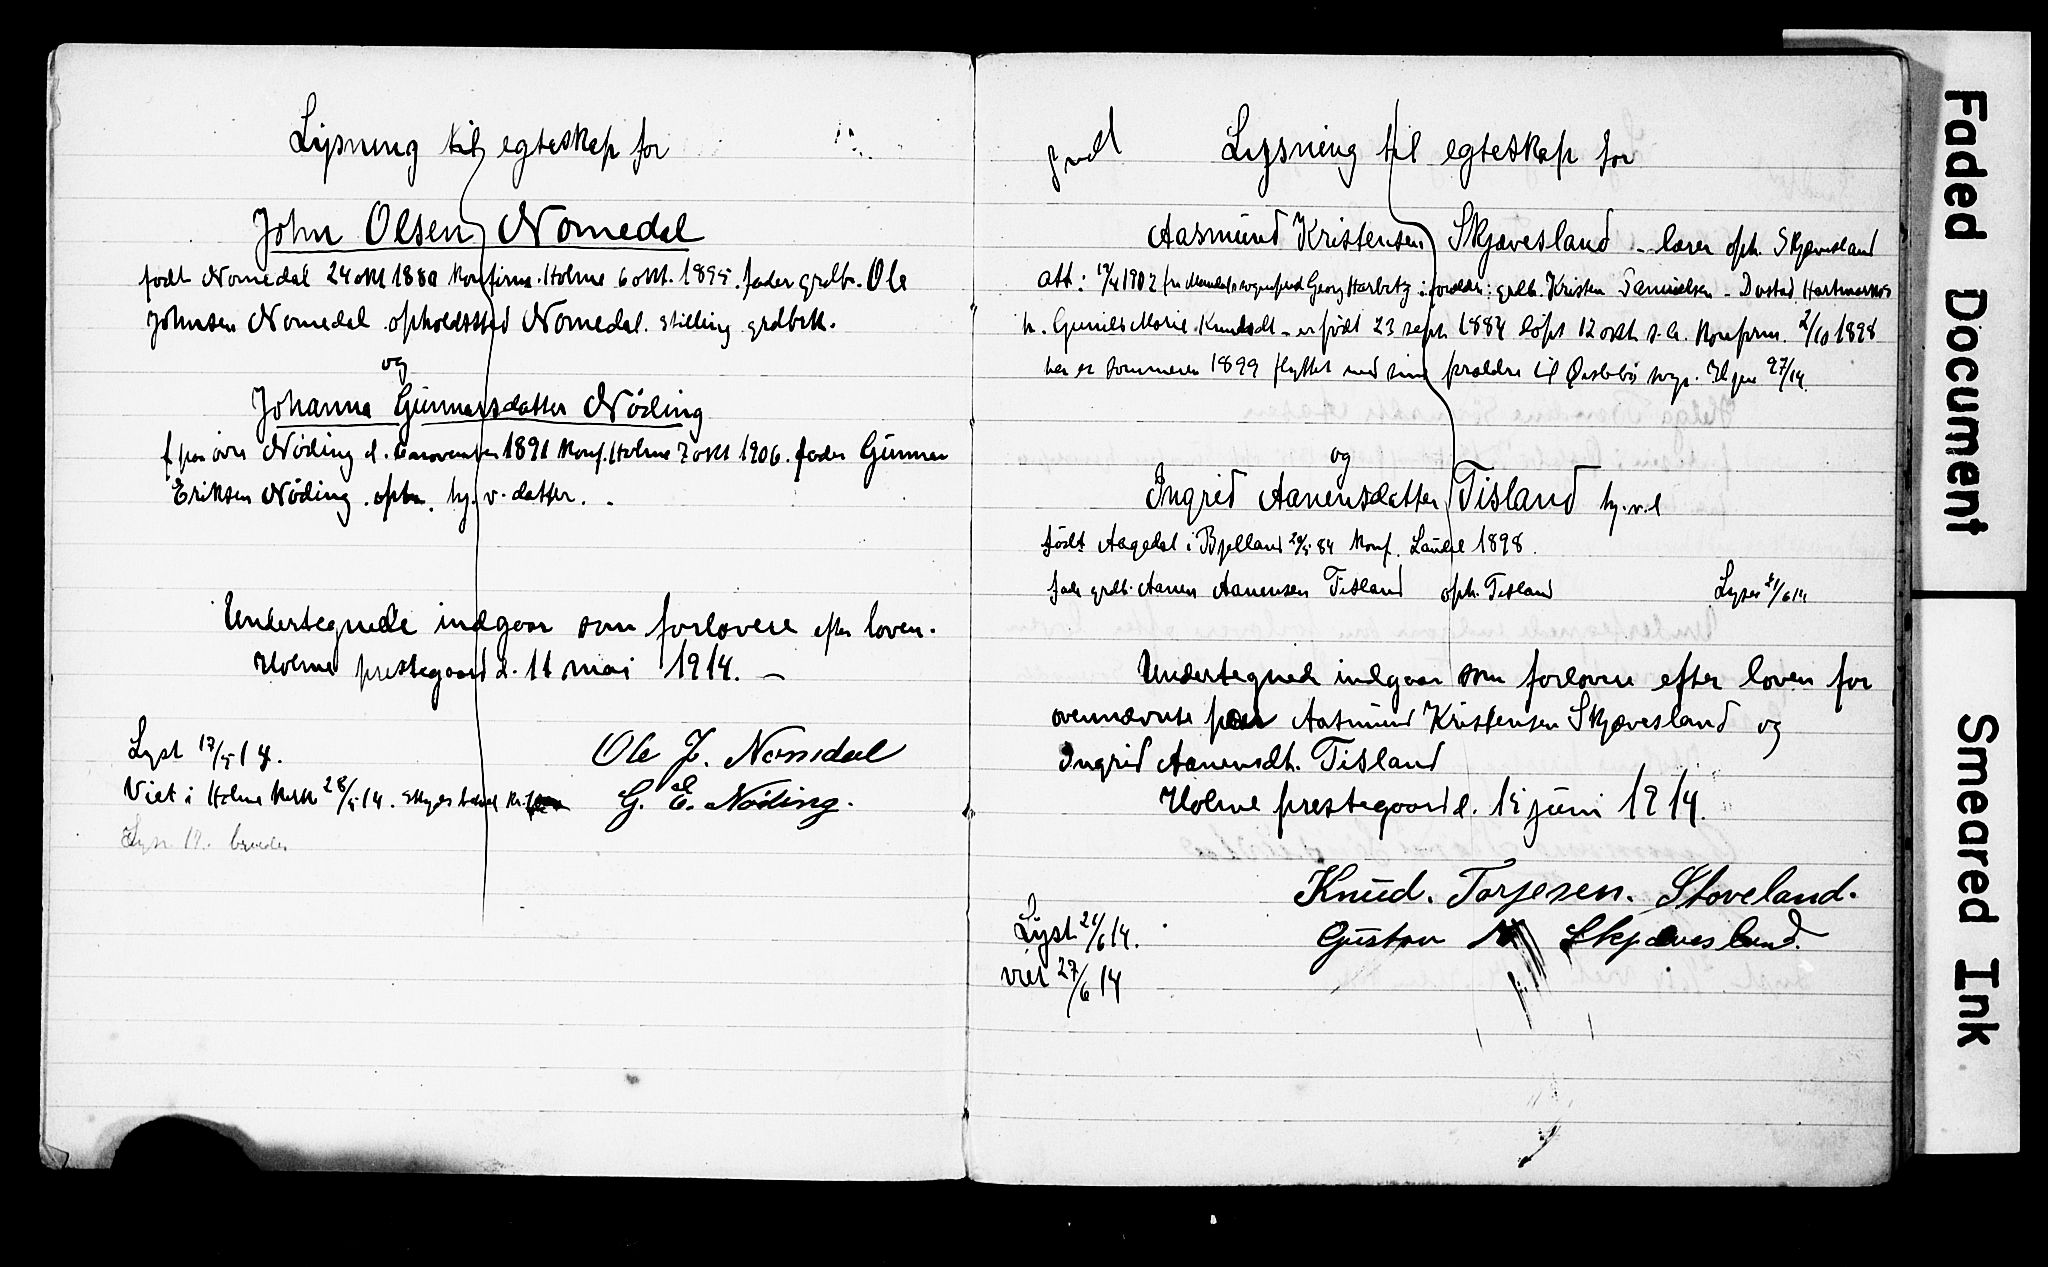 Lysning til egteskap for
John Olsen Nomedal
født Nomedal 24 okt 1880 konfirm. Holme 6 okt. 1895. fader grdbr. Ole
Johnsen Nomedal opholdssted Nomedal. stilling grdbrk.
og
Johanna Gunnarsdatter Nöding
f paa övre Nöding d. 6 november 1891 konf. Holme 7 okt 1906. fader Gunnar
Eriksen Nöding. oph. hj. v. datter.
Undertegnede indgaar som forlovere efter loven.
Holme prestegaard d. 11 mai 1914.
Lyst 17/5 14.
Viet i Holme kirke 28/5 14.
Ole J. Nomedal
G. E. Nöding.
Lysning til egteskap for
Aasmund Kristensen Skjævesland - lærer oph. Skjævesland
att: 1902 fra sogneprest Georg Harbitz: foreldre: grdb. Kristen Samuelsen
h. Gunild Marie Knudsdt. er født 23 sept 1884 döpt 12 okt. s. a. konfirm. 2/10 1898
har er sommeren 1899 flyttet med sine forældre til Öislebö sogn.
og
Ingrid Aanensdatter Tisland hj. v. d
født Aagedal i Bjelland 84 konf. Laudal 1898.
fader grdb. Aanen Aanensen Tisland oph. Tisland
Lyses 21/6 14
Undertegnede indgaar som forlovere efter loven for
ovennævnte par Aasmund Kristensen Skjævesland og
Ingrid Aanensdt. Tisland
Holme prestegaard d. 15 juni 1914.
Knud. Torjesen. Stoveland.
Gustav Skjævesland.
Lyst 21/6 14.
viet 27/6 14
Faded Document
Smeared Ink